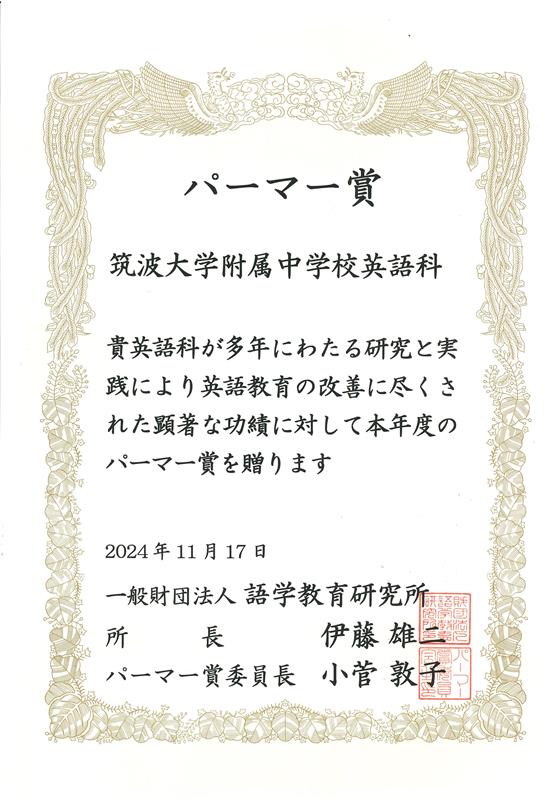 パーマー賞
筑波大学附属中学校英語科
貴英語科が多年にわたる研究と実
践により英語教育の改善に尽くさ
れた顕著な功績に対して本年度の
パーマー賞を贈ります
2024年11月17日
一般財団法人 語学教育研究所
所長 伊藤 雄二
パーマー賞委員長 小菅 敦子